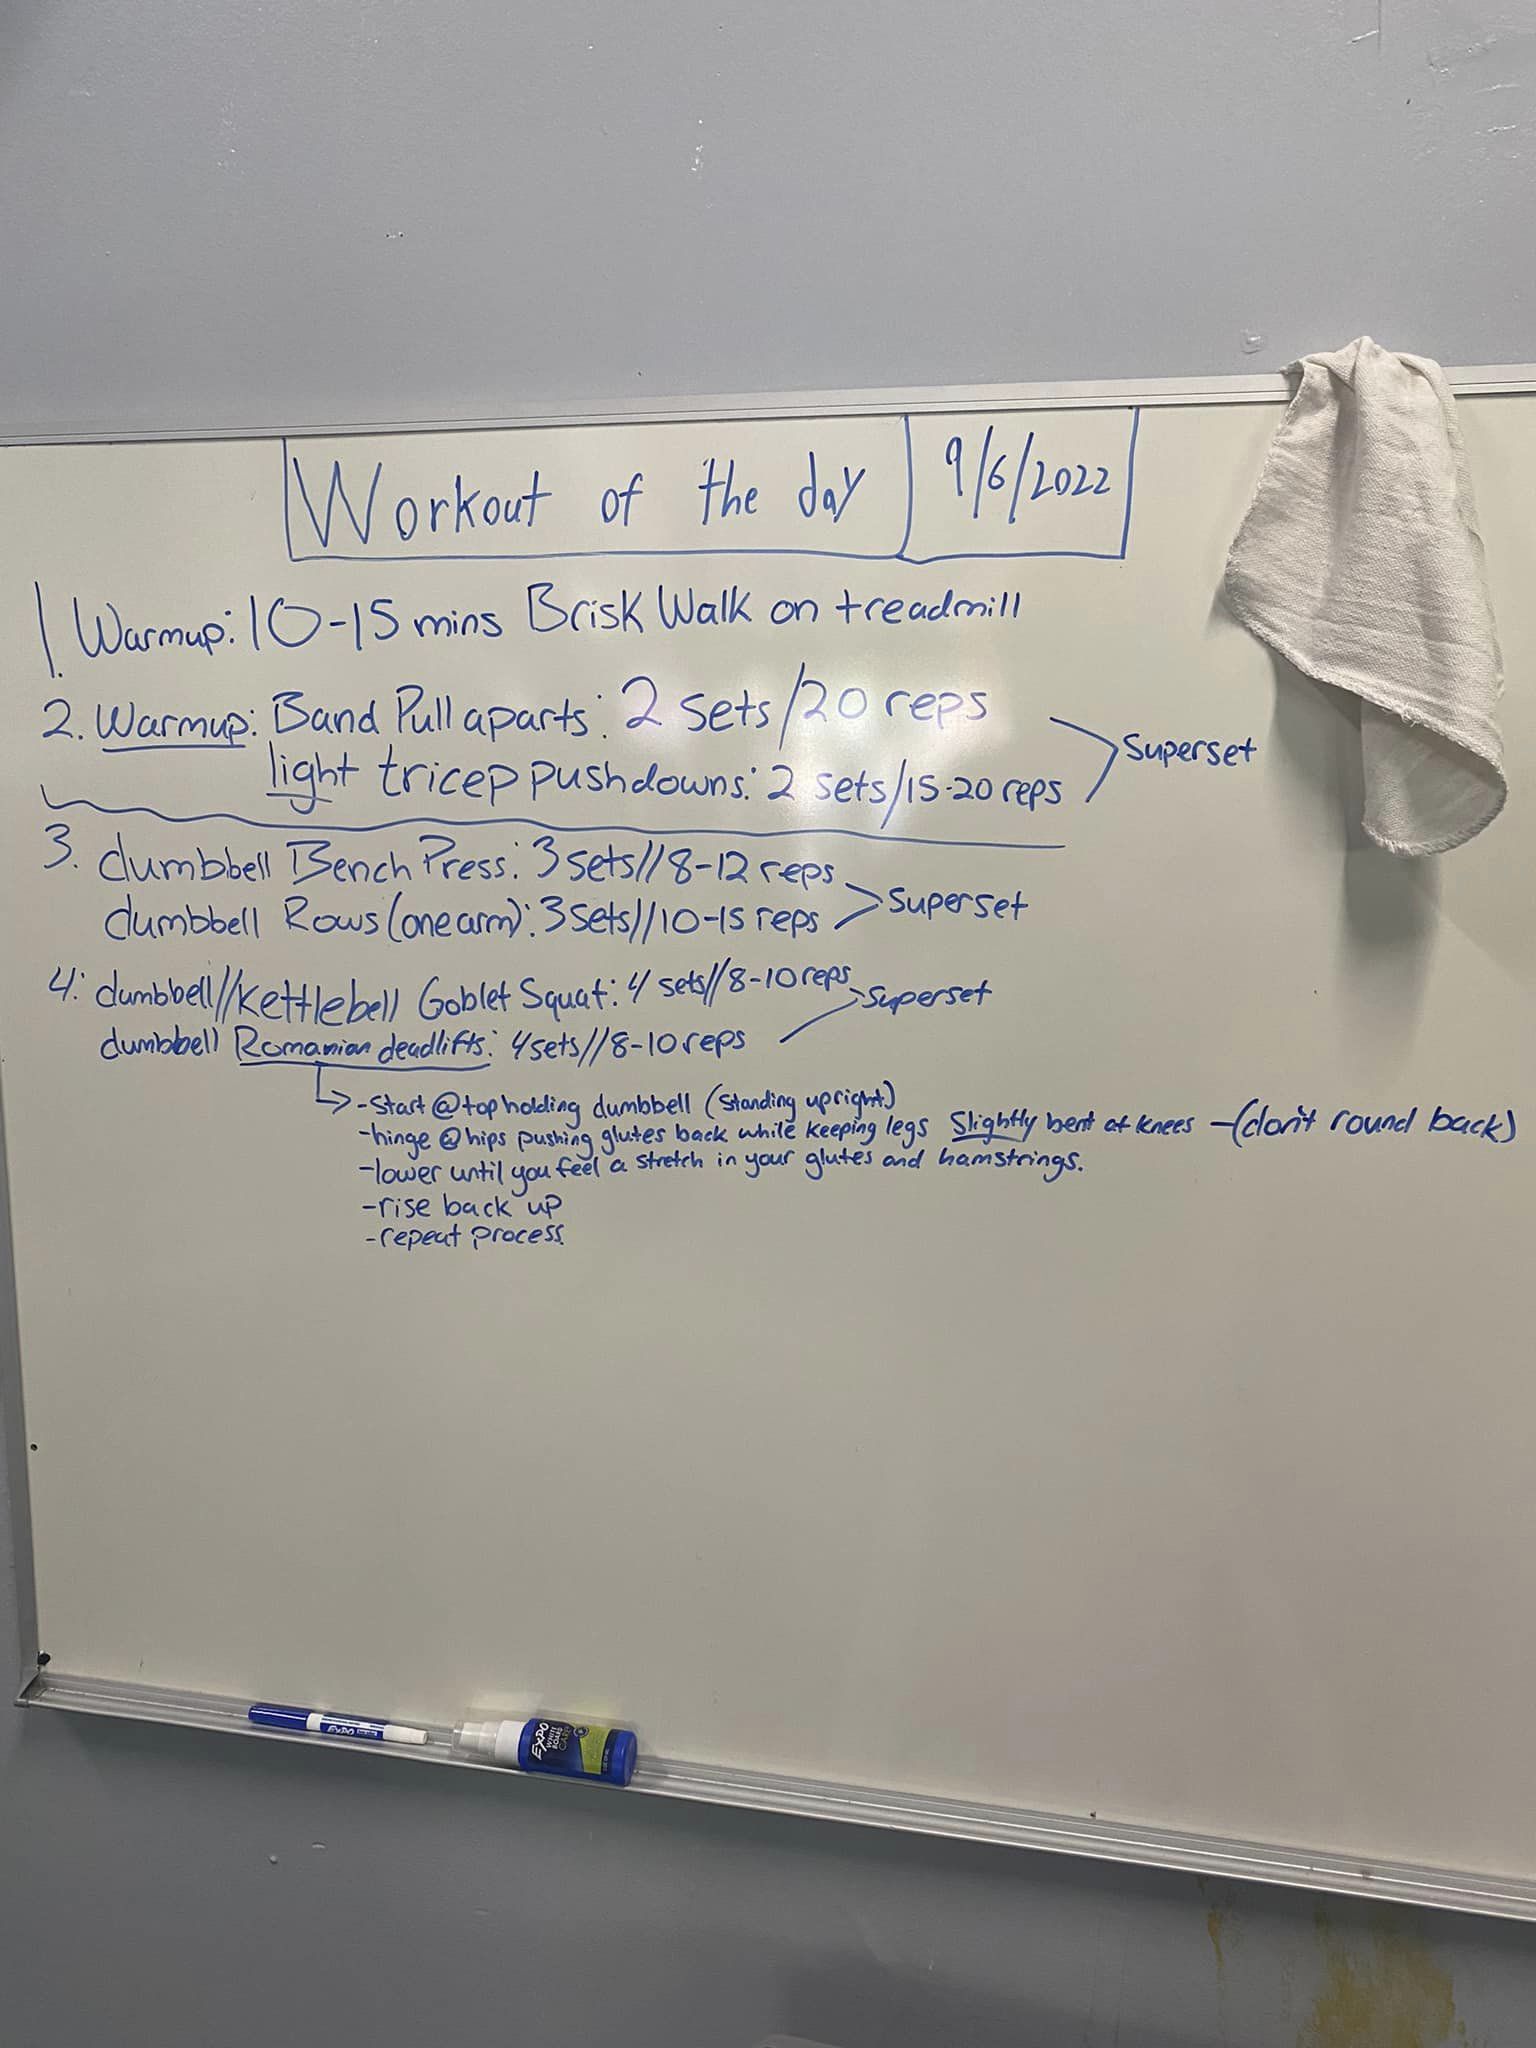 Workout of the day 9/6/2022
1. Warmup: 10-15 mins Brisk Walk on treadmill
2. Warmup: Band Pull aparts: 2 sets/20 reps
light tricep pushdowns: 2 sets/15-20 reps
Superset
3. dumbbell Bench Press: 3 sets//8-12 reps
dumbbell Rows (one arm): 3 sets//10-15 reps
Superset
4: dumbbell//Kettlebell Goblet Squat: 4 sets//8-10 reps
dumbbell Romanian deadlifts: 4 sets//8-10 reps
Superset
-Start @ top holding dumbbell (standing upright)
-hinge @ hips pushing glutes back while keeping legs slightly bent at knees -(don't round back)
-lower until you feel a stretch in your glutes and hamstrings.
-rise back up
-repeat process
EXPO
EXPO
WHITE
BOARD
CARE